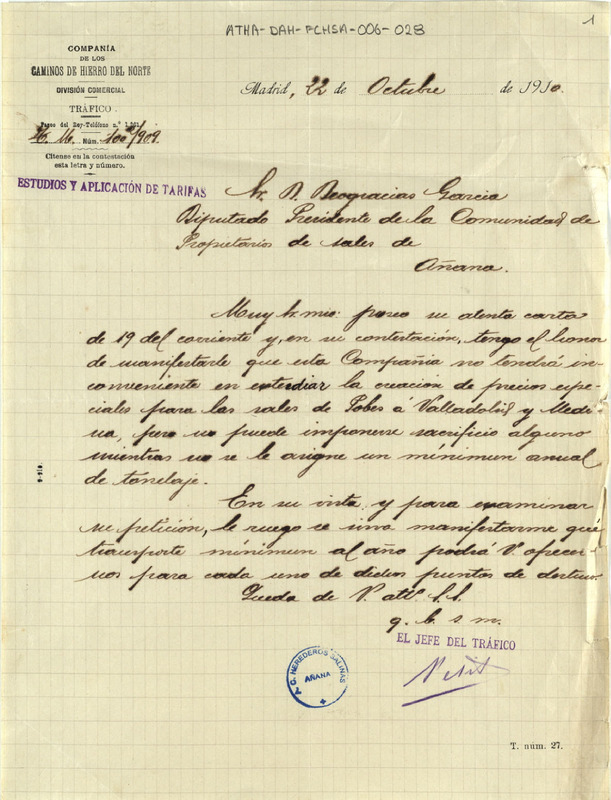 ATHA-DAH-FCHSA-006-028
1
COMPAÑÍA
DE LOS
CAMINOS DE HIERRO DEL NORTE
DIVISIÓN COMERCIAL
TRÁFICO
Paseo del Rey-Teléfono n.º
Núm. 100 /909
Cítense en la contestación
esta letra y número.
ESTUDIOS Y APLICACIÓN DE TARIFAS
Madrid, 22 de Octubre de 1910.
Sr. D. Deogracias Garcia
Diputado Presidente de la Comunidad de
Propietarios de sales de
Añana.
Muy Sr. mio: poseo su atenta carta
de 19 del corriente y, en su contestación, tengo el honor
de manifestarle que esta Compañia no tendrá in-
conveniente en estudiar la creacion de precios espe-
ciales para las sales de Pobes á Valladolid y Medi-
na, pero no puede imponerse sacrificio alguno
mientras no se le asigne un mínimun anual
de tonelaje.
En su vista y para examinar
su petición, le ruego se sirva manifestarme qué
transporte mínimun al año podrá V. ofrecer-
nos para cada uno de dichos puntos de destino.
Queda de V. attº. S.S.
q. b. s. m.
EL JEFE DEL TRÁFICO
C. HEREDEROS SALINAS
AÑANA
T. núm. 27.